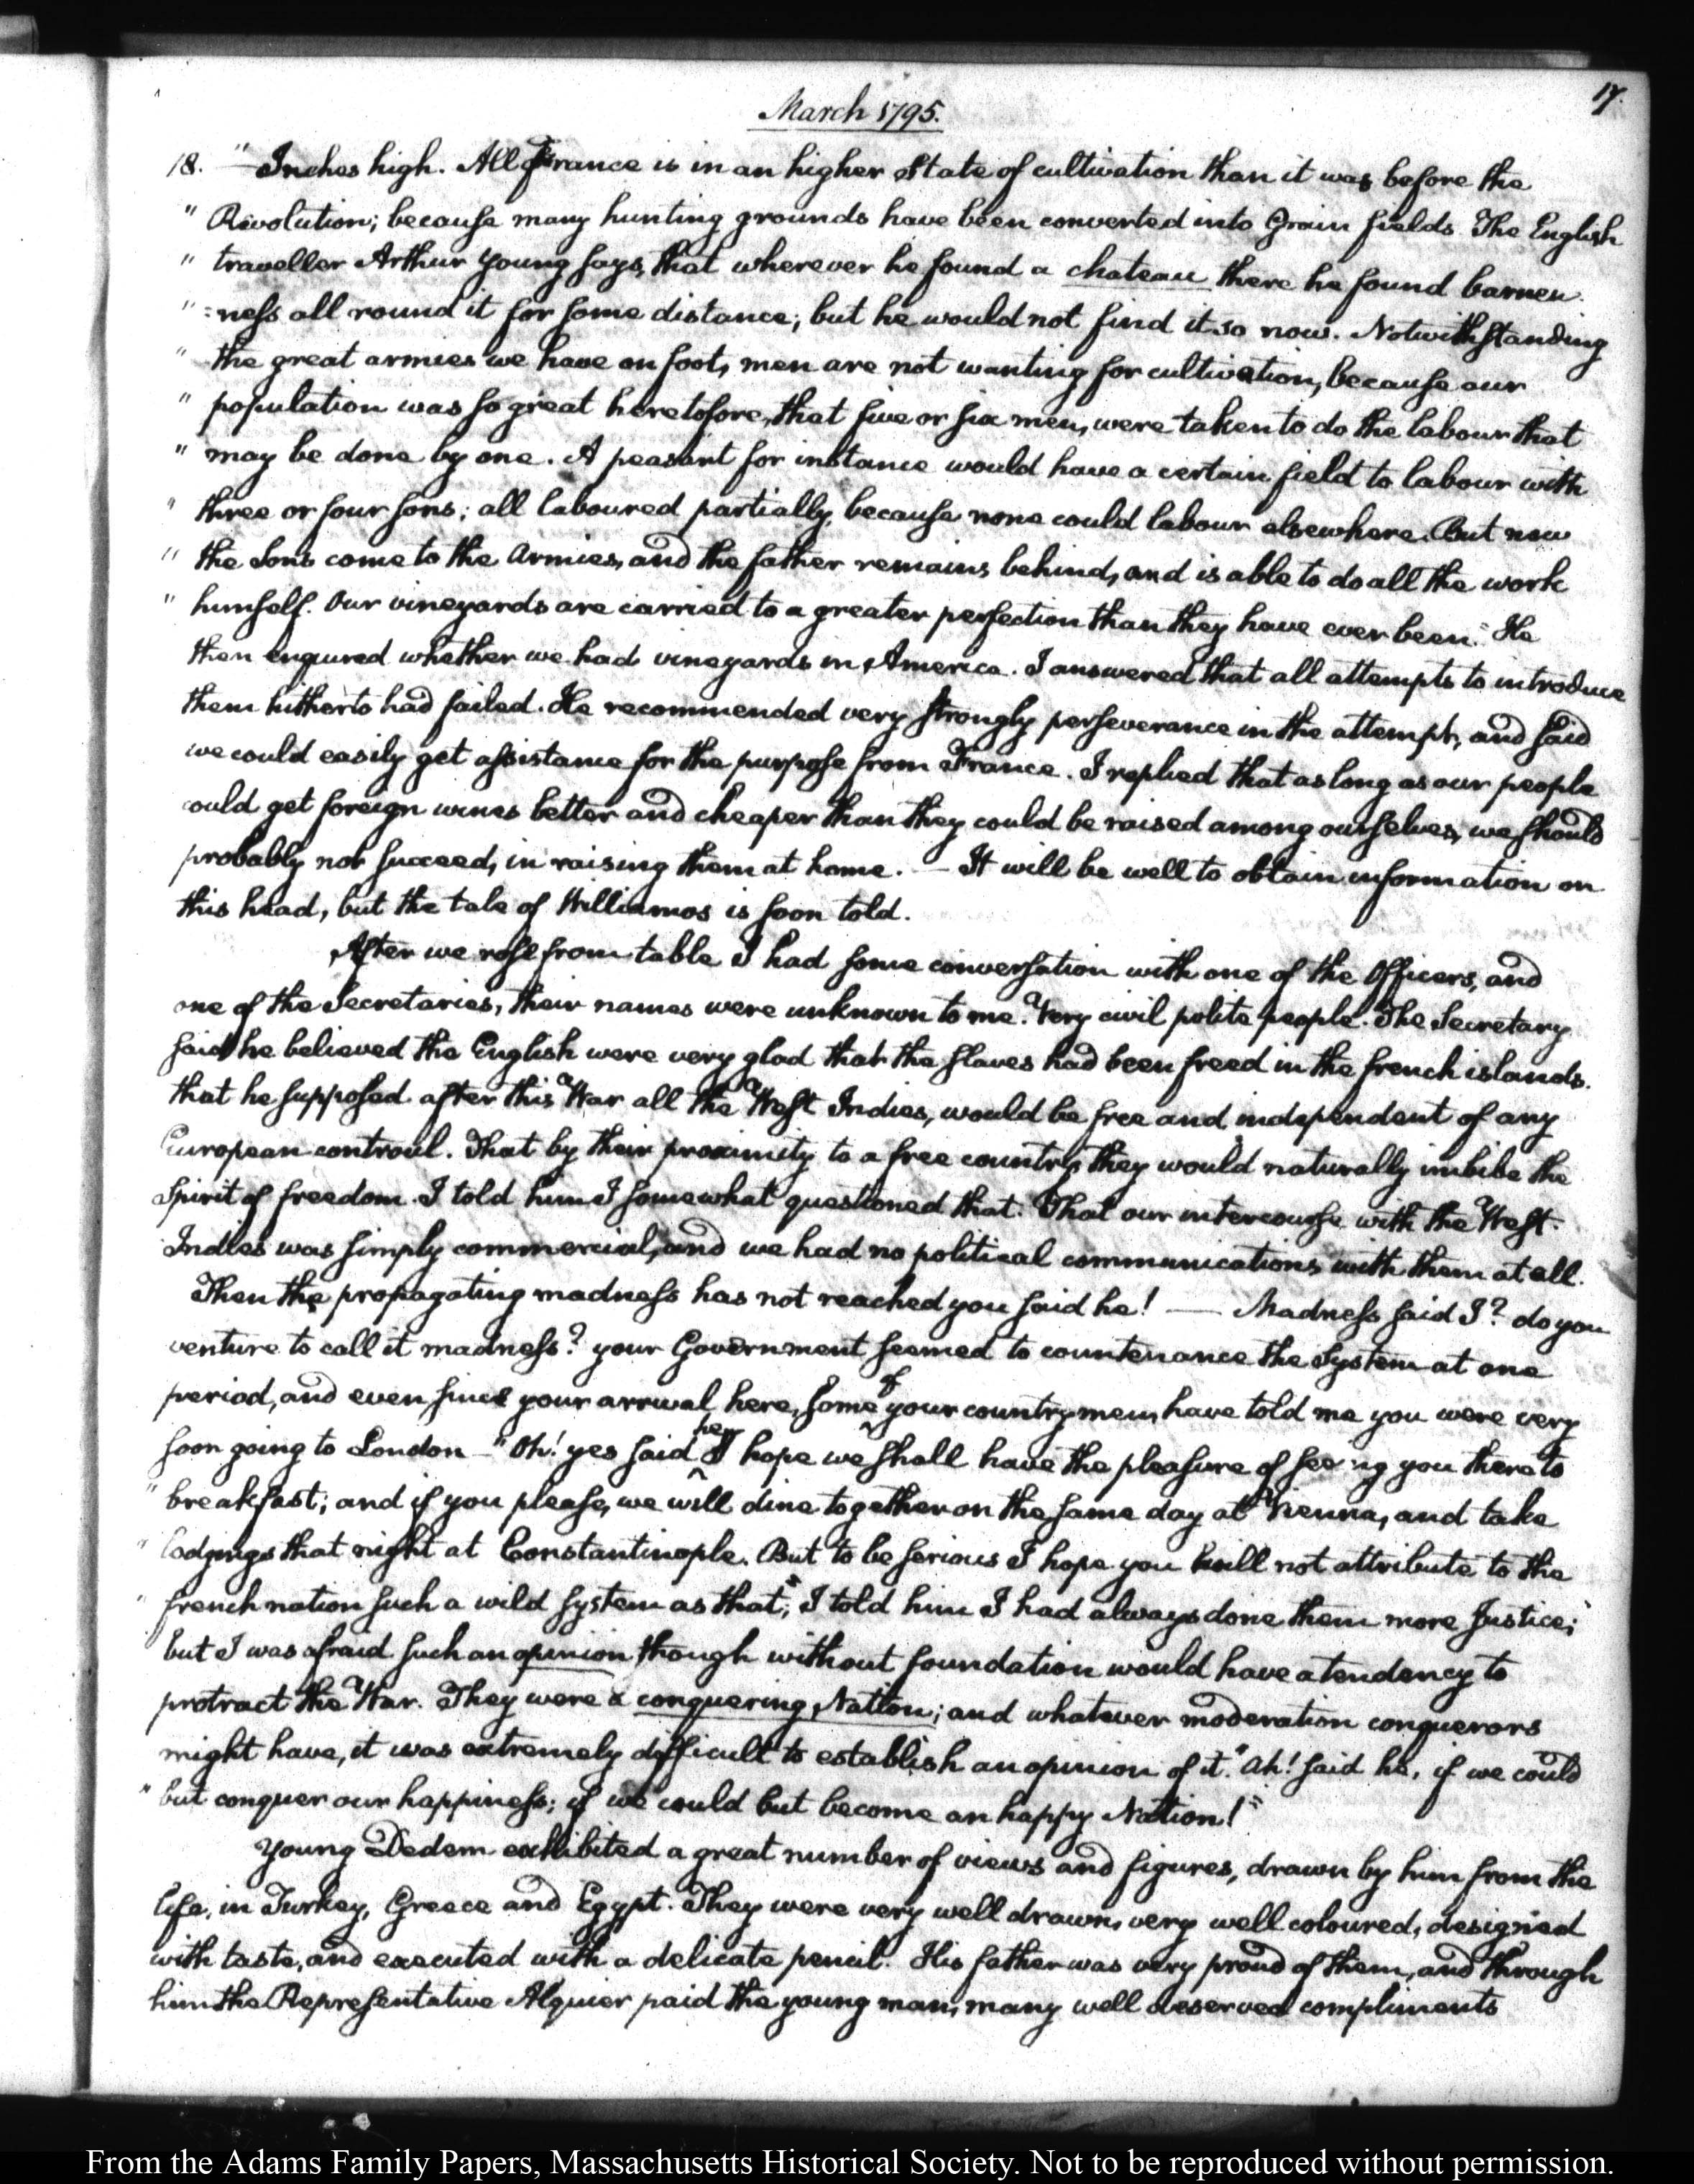 17.
March 1795.
18. " Inches high. All France is in an higher State of cultivation than it was before the
" Revolution; because many hunting grounds have been converted into Grain fields. The English
" traveller Arthur Young says, that wherever he found a chateau there he found barren
" =ness all round it for some distance; but he would not find it so now. Notwithstanding
" the great armies we have on foot, men are not wanting for cultivation, because our
" population was so great heretofore, that five or six men, were taken to do the labour that
" may be done by one. A peasant for instance would have a certain field to labour with
" three or four sons; all laboured partially, because none could labour elsewhere. But now
" the Sons come to the Armies, and the father remains behind, and is able to do all the work
" himself. Our vineyards are carried to a greater perfection than they have ever been." He
then enquired whether we had vineyards in America. I answered that all attempts to introduce
them hitherto had failed. He recommended very strongly perseverance in the attempt, and said
we could easily get assistance for the purpose from France. I replied that as long as our people
could get foreign wines better and cheaper than they could be raised among ourselves, we should
probably not succeed, in raising them at home. — It will be well to obtain information on
this head, but the tale of Williamos is soon told.
After we rose from table I had some conversation with one of the Officers, and
one of the Secretaries, their names were unknown to me. Very civil polite people. The Secretary
said he believed the English were very glad that the slaves had been freed in the french islands.
that he supposed after this War all the West Indies, would be free and independent of any
European controul. That by their proximity to a free country, they would naturally imbibe the
Spirit of freedom. I told him I somewhat questioned that. That our intercourse with the West-
Indies was simply commercial, and we had no political communications with them at all.
Then the propagating madness has not reached you said he! — Madness said I? do you
venture to call it madness? your Government seemed to countenance the System at one
period, and even since your arrival here, some of your countrymen have told me you were very
soon going to London — "Oh! yes said he I hope we shall have the pleasure of seeing you there to
" breakfast; and if you please, we will dine together on the same day at Vienna, and take
" lodgings that night at Constantinople. But to be serious I hope you will not attribute to the
" french nation such a wild system as that", I told him I had always done them more Justice;
but I was afraid such an opinion though without foundation would have a tendency to
protract the War. They were a conquering Nation; and whatever moderation conquerors
might have, it was extremely difficult to establish an opinion of it. "Ah! said he, if we could
" but conquer our happiness; if we could but become an happy Nation!"
Young Dedem exhibited a great number of views and figures, drawn by him from the
life, in Turkey, Greece and Egypt. They were very well drawn, very well coloured, designed
with taste, and executed with a delicate pencil. His father was very proud of them, and through
him the Representative Alquier paid the young man, many well deserved compliments
From the Adams Family Papers, Massachusetts Historical Society. Not to be reproduced without permission.